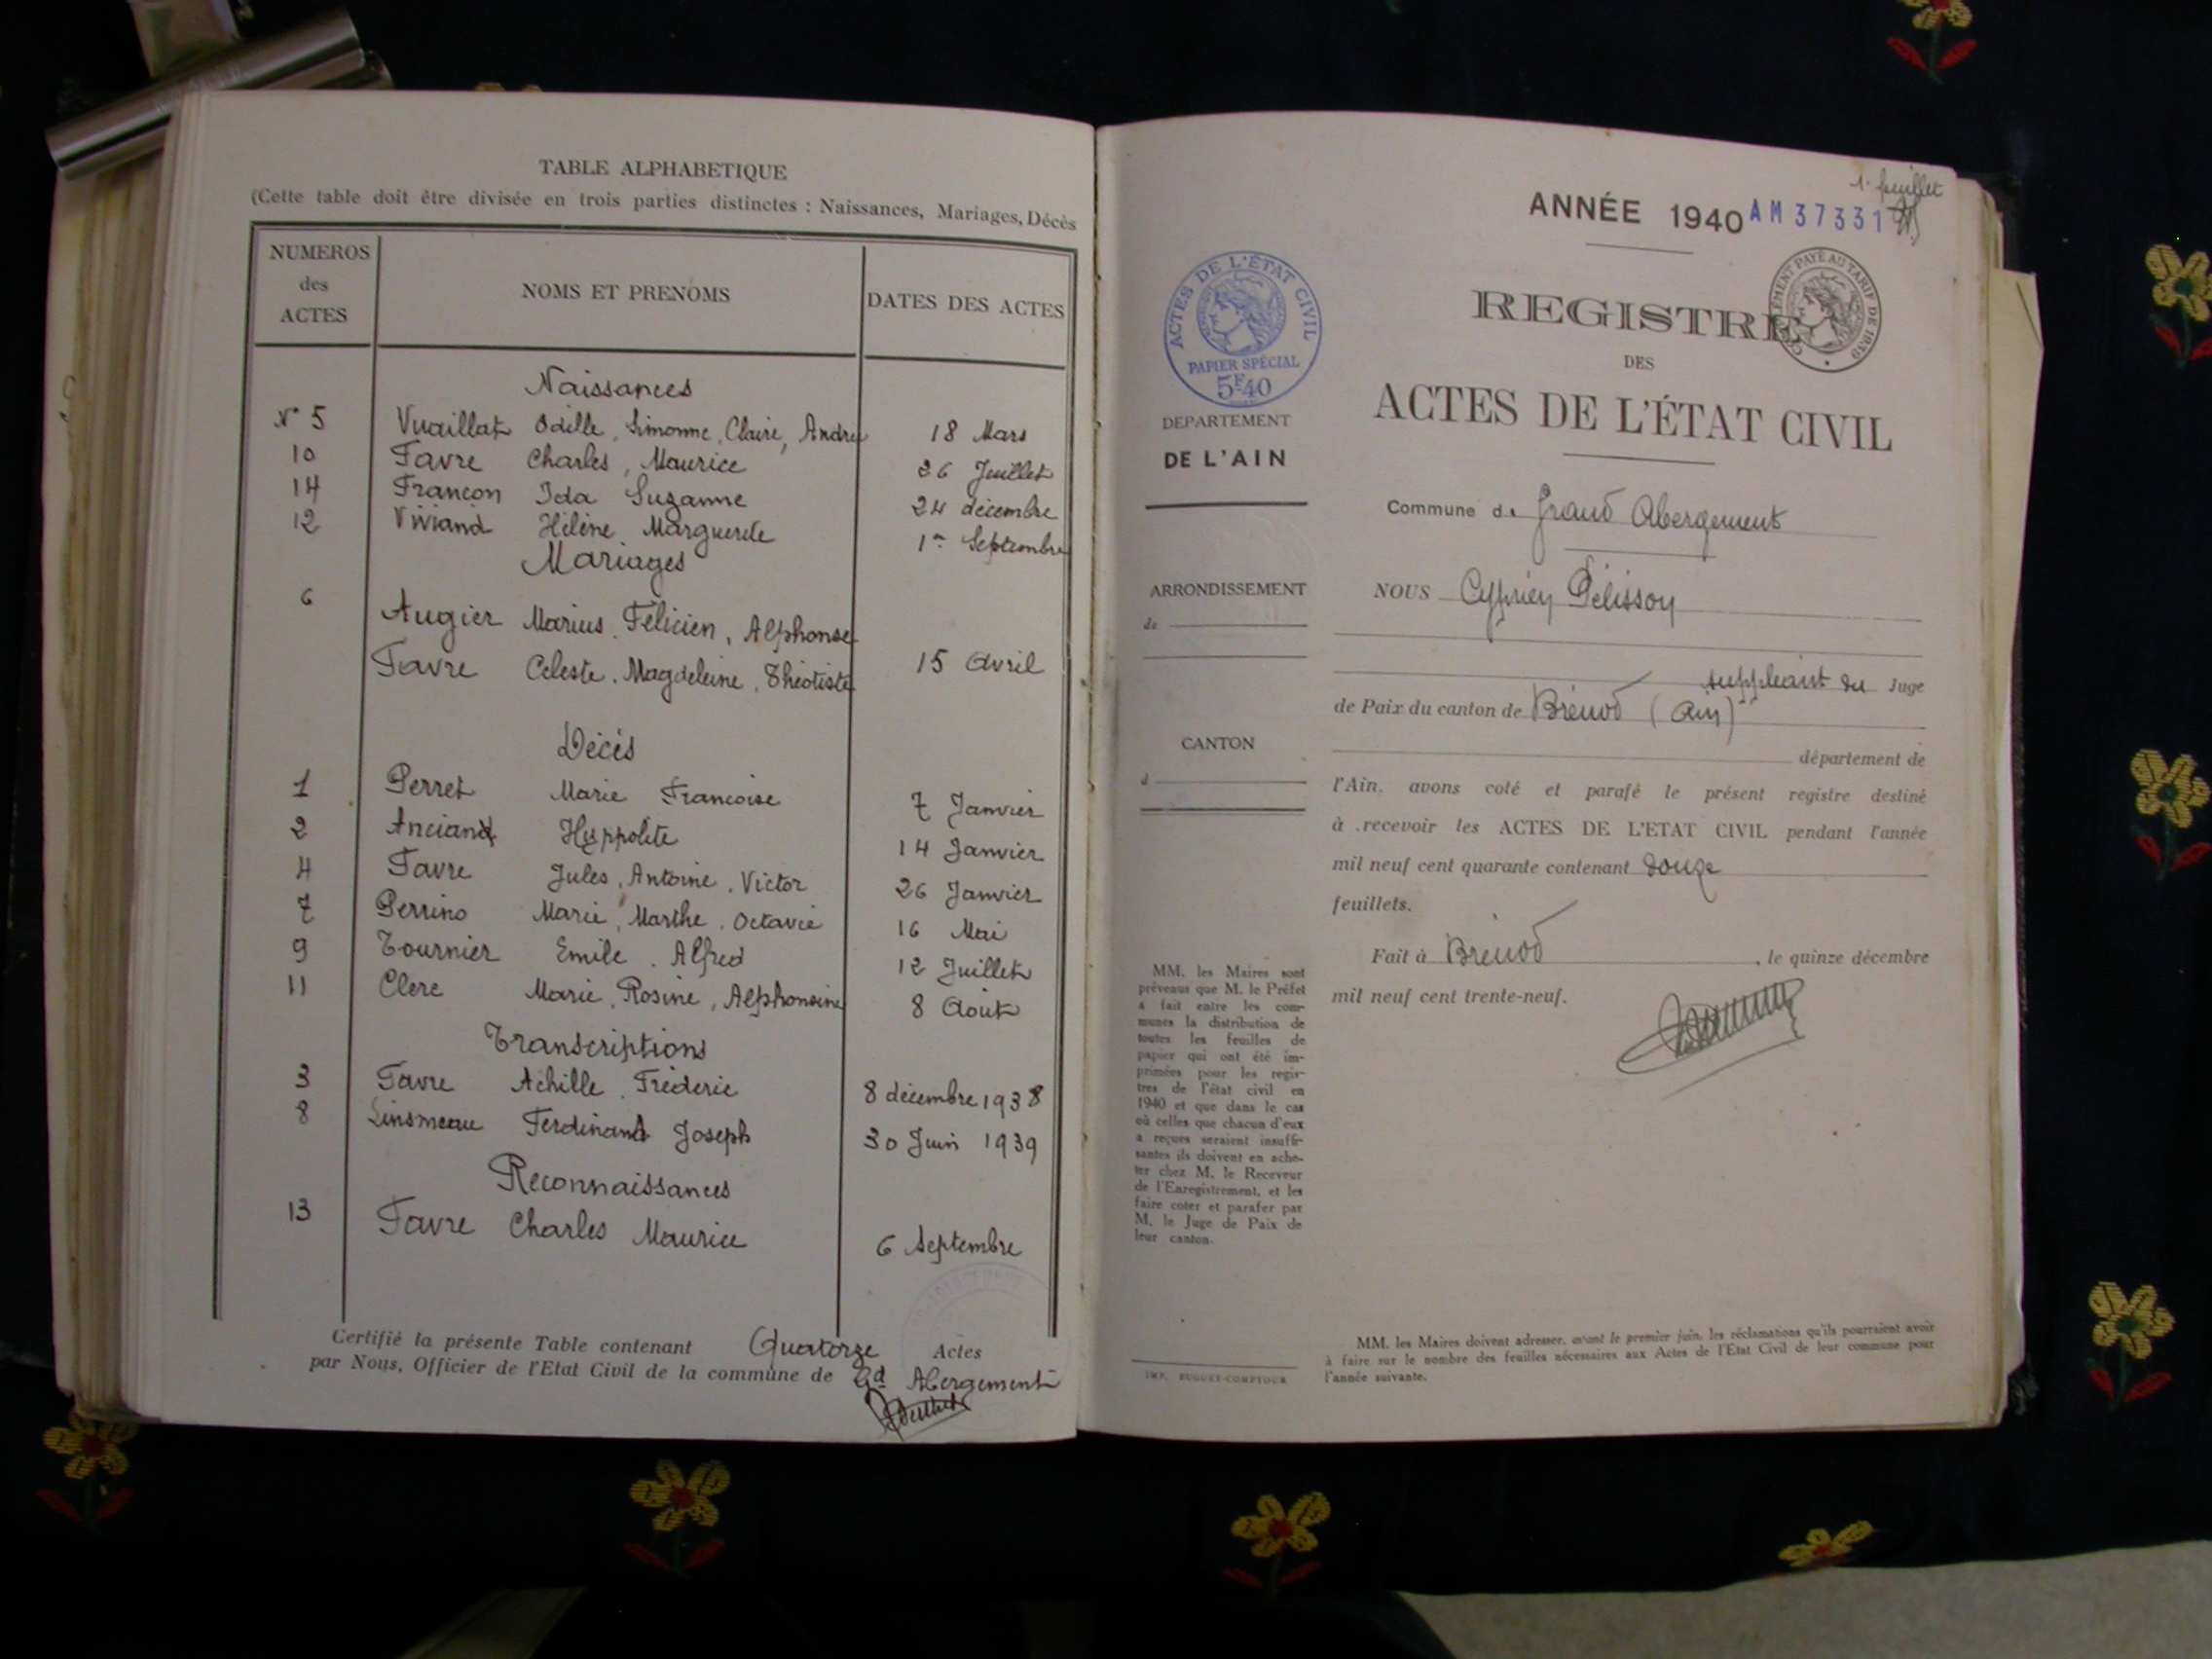 TABLE ALPHABETIQUE
(Cette table doit être divisée en trois parties distinctes : Naissances, Mariages, Décès
NUMEROS
des
ACTES
NOMS ET PRENOMS
DATES DES ACTES
Naissances
N° 5 Vuaillat Odille, Simonne, Claire, Andrée 18 Mars
10 Favre Charles, Maurice 26 Juillet
14 Françon Ida Suzanne 24 décembre
12 Viviand Hélène Marguerite 1er Septembre
Mariages
6 Augier Marius, Félicien, Alphonse
Favre Celeste, Magdeleine, Théotiste 15 Avril
Décès
1 Perret Marie Francoise 7 Janvier
2 Anciand Hyppolite 14 Janvier
4 Favre Jules, Antoine, Victor 26 Janvier
7 Perrino Marie, Marthe, Octavie 16 Mai
9 Tournier Emile, Alfred 12 Juillet
11 Clerc Marie, Rosine, Alphonsine 8 Août
Transcriptions
3 Favre Achille, Fréderic 8 décembre 1938
8 Linsmeau Ferdinand Joseph 30 Juin 1939
Reconnaissances
13 Favre Charles Maurice 6 Septembre
Certifié la présente Table contenant Quatorze Actes
par Nous, Officier de l'Etat Civil de la commune de Gd Abergement
1er feuillet
ANNÉE 1940 AM 37331
ACTES DE L'ÉTAT CIVIL
PAPIER SPÉCIAL
5F40
PAYÉ AU TARIF DE 1939
REGISTRE
DES
ACTES DE L'ÉTAT CIVIL
DEPARTEMENT
DE L'AIN
Commune de Grand Abergement
ARRONDISSEMENT
de
NOUS Cyprien Pélisson
suppleant du Juge
de Paix du canton de Brénod (Ain)
CANTON
d
département de
l'Ain, avons coté et parafé le présent registre destiné
à recevoir les ACTES DE L'ETAT CIVIL pendant l'année
mil neuf cent quarante contenant douze
feuillets.
Fait à Brénod, le quinze décembre
mil neuf cent trente-neuf.
MM. les Maires sont
prévenus que M. le Préfet
a fait entre les com-
munes la distribution de
toutes les feuilles de
papier qui ont été im-
primées pour les regis-
tres de l'état civil en
1940 et que dans le cas
où celles que chacun d'eux
a reçues seraient insuffi-
santes ils doivent en ache-
ter chez M. le Receveur
de l'Enregistrement, et les
faire coter et parafer par
M. le Juge de Paix de
leur canton.
IMP. BUGUET-COMPTOUR
MM. les Maires doivent adresser, avant le premier juin, les réclamations qu'ils pourraient avoir
à faire sur le nombre des feuilles nécessaires aux Actes de l'Etat Civil de leur commune pour
l'année suivante.